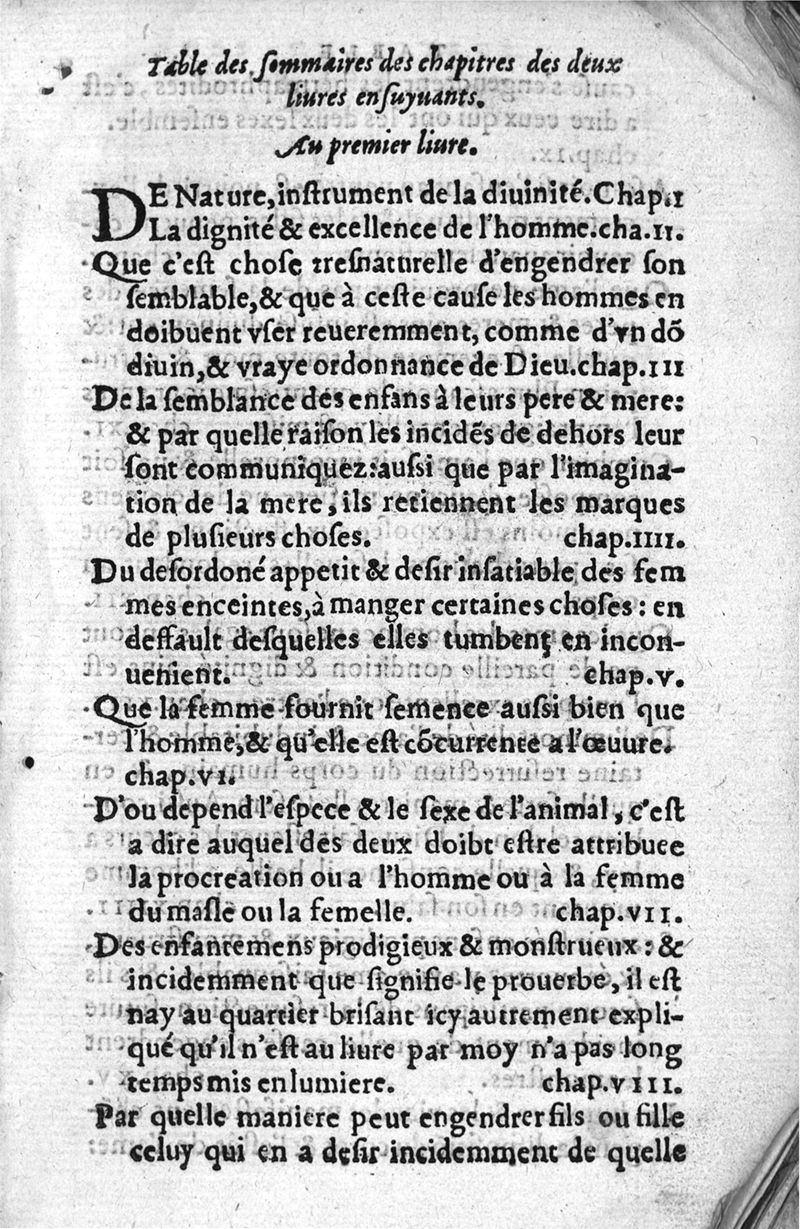 Table des sommaires des chapitres des deux
liures ensuyuants.
Au premier liure.
DE Nature, instrument de la diuinité. Chap.I
La dignité & excellence de l'homme. cha.II.
Que c'est chose tresnaturelle d'engendrer son
semblable, & que à ceste cause les hommes en
doibuent vser reueremment, comme d'vn dõ
diuin, & vraye ordonnance de Dieu. chap.III
De la semblance des enfans à leurs pere & mere:
& par quelle raison les incidẽs de dehors leur
sont communiquez: aussi que par l'imagina-
tion de la mere, ils retiennent les marques
de plusieurs choses. chap.IIII.
Du desordoné appetit & desir insatiable des fem
mes enceintes, à manger certaines choses: en
deffault desquelles elles tumbent en incon-
uenient. chap.V.
Que la femme fournit semence aussi bien que
l'homme, & qu'elle est cõcurrente a l'œuure.
chap.VI.
D'ou depend l'espece & le sexe de l'animal, c'est
a dire auquel des deux doibt estre attribuee
la procreation ou a l'homme ou à la femme
du masle ou la femelle. chap.VII.
Des enfantemens prodigieux & monstrueux: &
incidemment que signifie le prouerbe, il est
nay au quartier brisant icy autrement expli-
qué qu'il n'est au liure par moy n'a pas long
temps mis en lumiere. chap.VIII.
Par quelle maniere peut engendrer fils ou fille
celuy qui en a desir incidemment de quelle